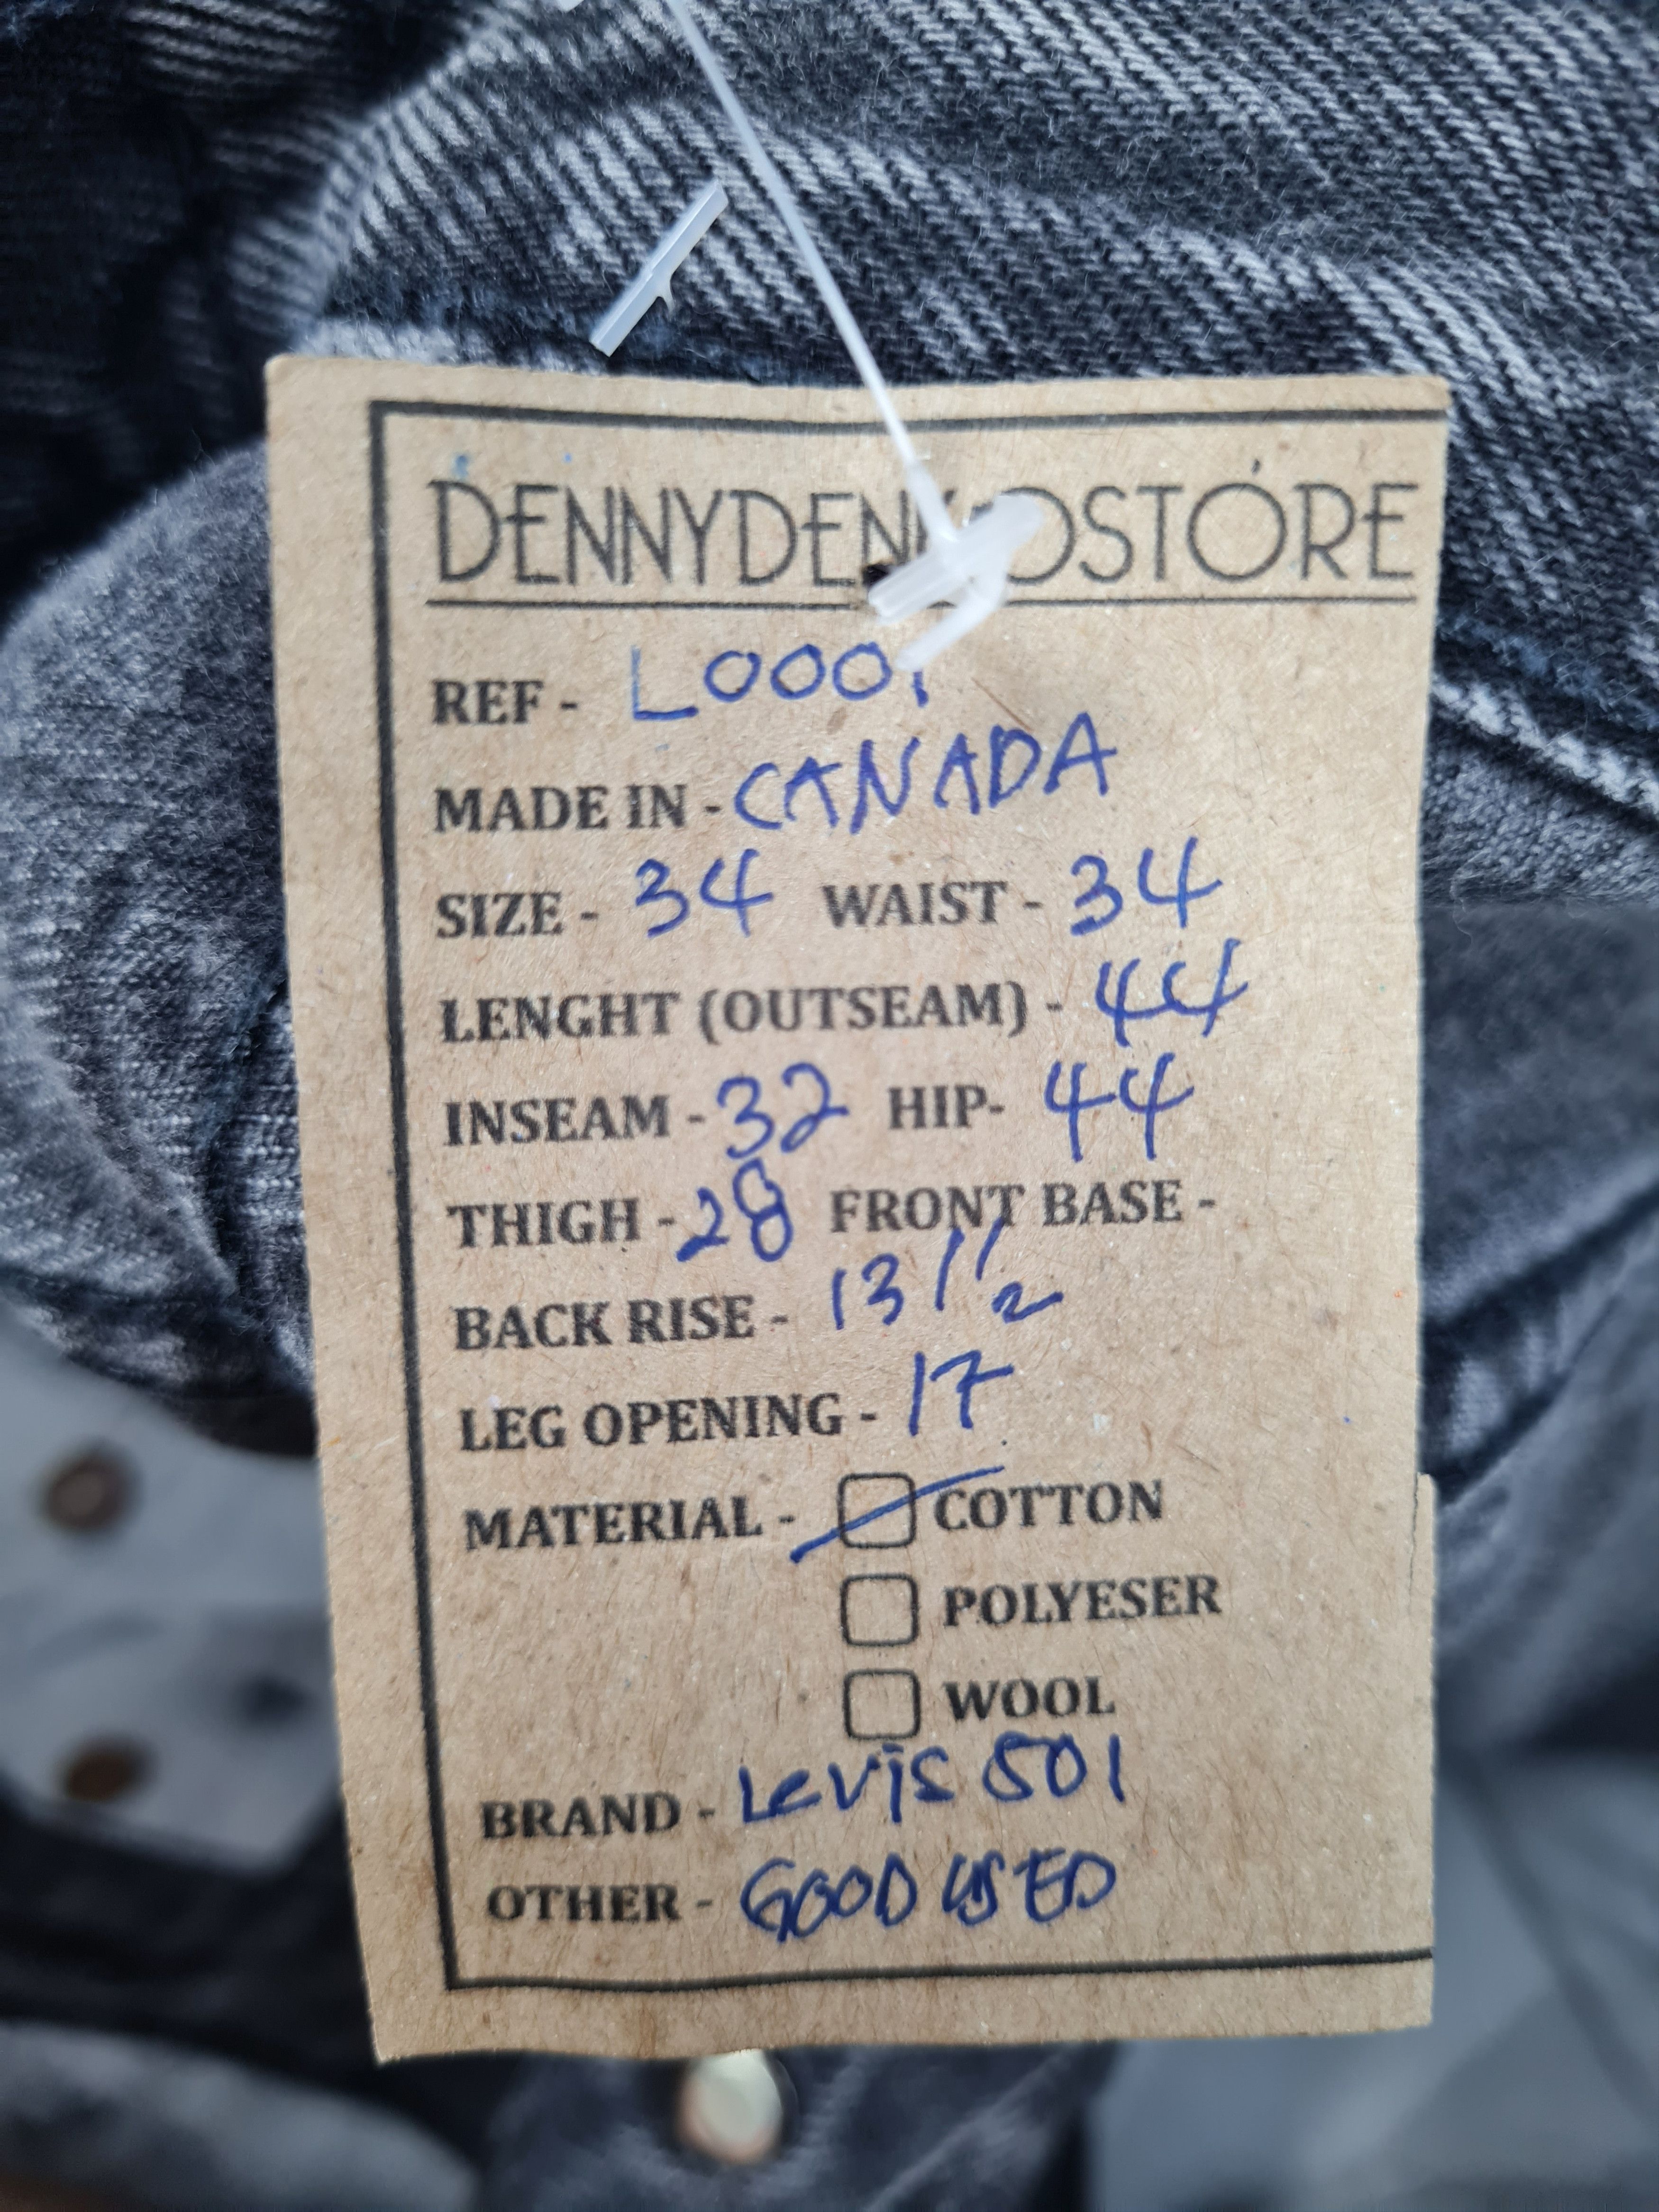 REF -
MADE IN - CANADA
SIZE - 34 WAIST - 34
LENGHT (OUTSEAM) - 44
INSEAM - 32 HIP- 44
THIGH - 28 FRONT BASE -
BACK RISE - 13 1/2
LEG OPENING - 17
MATERIAL - COTTON
POLYESER
WOOL
BRAND - Levis 501
OTHER - GOOD USED